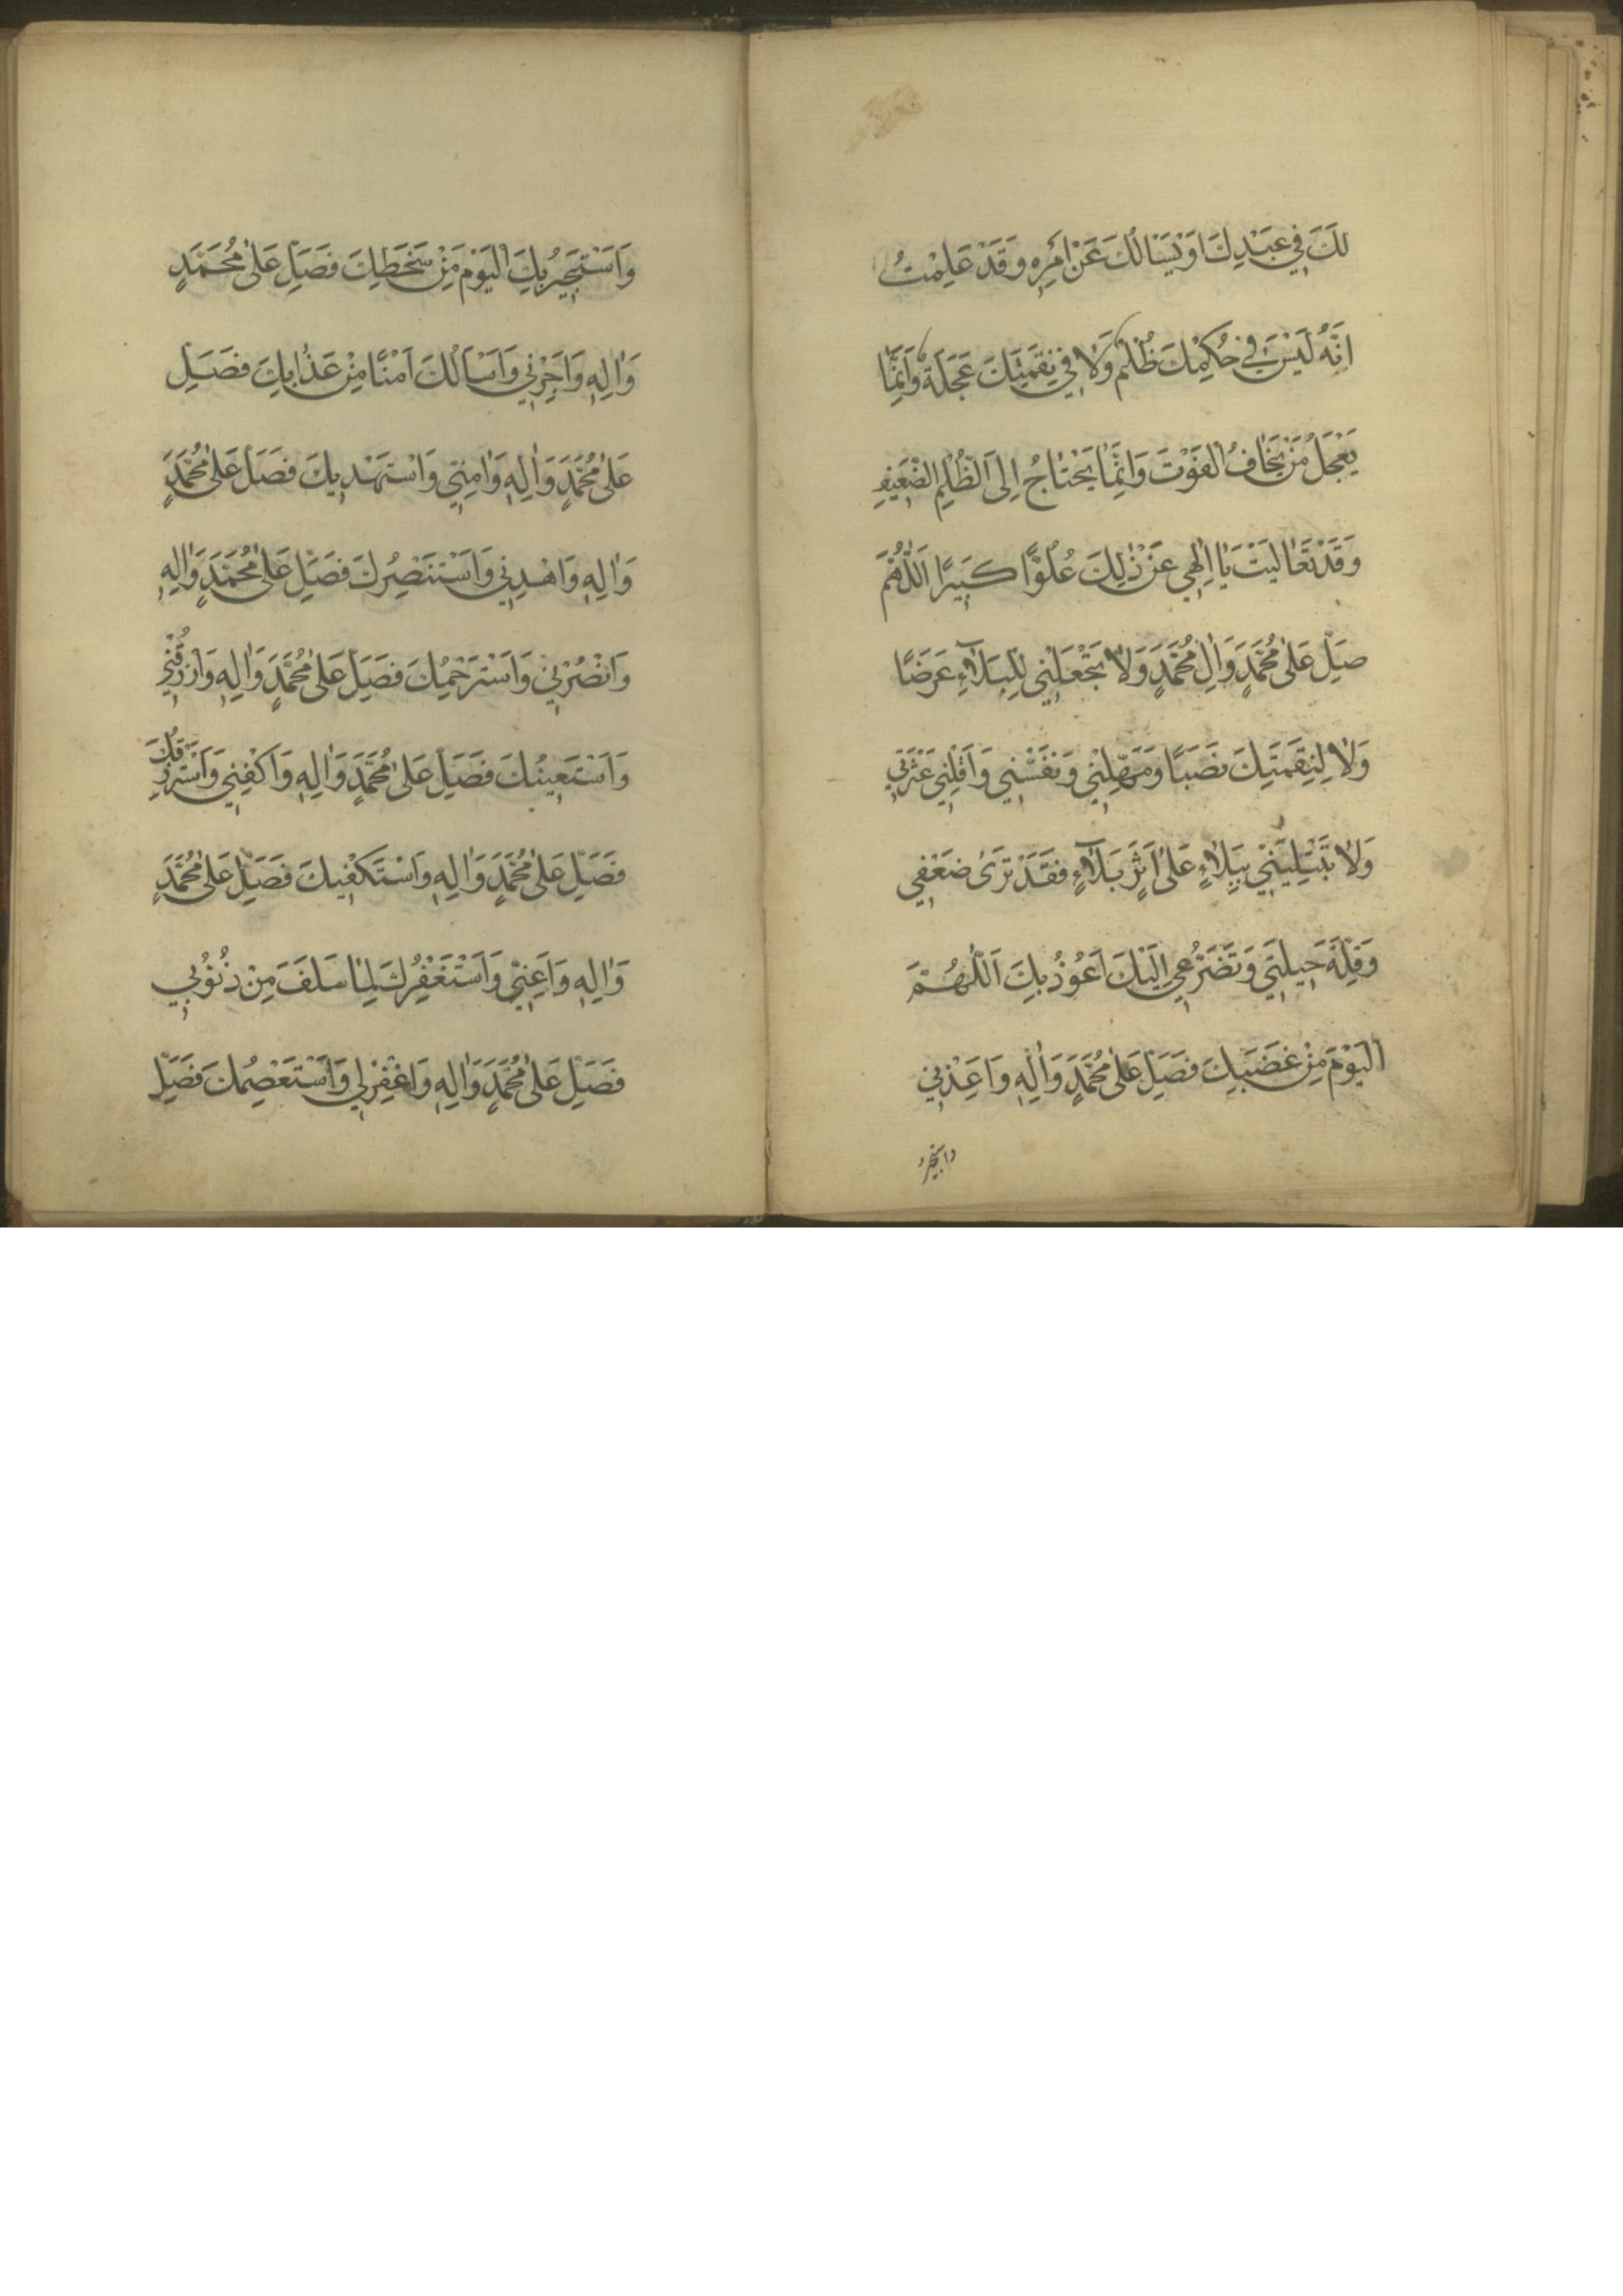 لَكَ فِي عَبْدِكَ اَوْ يَسْأَلُكَ عَنْ اَمْرِهِ وَقَدْ عَلِمْتُ
اَنَّهُ لَيْسَ فِي حُكْمِكَ ظُلْمٌ وَلَا فِي نَقِمَتِكَ عَجَلَةٌ وَاِنَّمَا
يَعْجَلُ مَنْ يَخَافُ الْفَوْتَ وَاِنَّمَا يَحْتَاجُ اِلَى الظُّلْمِ الضَّعِيفُ
وَقَدْ تَعَالَيْتَ يَا اِلٰهِي عَنْ ذٰلِكَ عُلُوًّا كَبِيرًا اَللّٰهُمَّ
صَلِّ عَلٰى مُحَمَّدٍ وَاٰلِ مُحَمَّدٍ وَلَا تَجْعَلْنِي لِلْبَلَاۤءِ غَرَضًا
وَلَا لِنَقِمَتِكَ نَصَبًا وَمَهِّلْنِي وَنَفِّسْنِي وَاَقِلْنِي عَثْرَتِي
وَلَا تَبْتَلِيَنِّي بِبَلَاءٍ عَلٰى اَثَرِ بَلَاۤءٍ فَقَدْ تَرٰى ضَعْفِي
وَقِلَّةَ حِيلَتِي وَتَضَرُّعِي اِلَيْكَ اَعُوذُ بِكَ اَللّٰهُمَّ
الْيَوْمَ مِنْ غَضَبِكَ فَصَلِّ عَلٰى مُحَمَّدٍ وَاٰلِهِ وَاَعِذْنِي
وَاَسْتَجِيرُ بِكَ الْيَوْمَ مِنْ سَخَطِكَ فَصَلِّ عَلٰى مُحَمَّدٍ
وَاٰلِهِ وَاَجِرْنِي وَاَسْاَلُكَ اَمْنًا مِنْ عَذَابِكَ فَصَلِّ
عَلٰى مُحَمَّدٍ وَاٰلِهِ وَاٰمِنِّي وَاَسْتَهْدِيكَ فَصَلِّ عَلٰى مُحَمَّدٍ
وَاٰلِهِ وَاهْدِنِي وَاَسْتَنْصِرُكَ فَصَلِّ عَلٰى مُحَمَّدٍ وَاٰلِهِ
وَانْصُرْنِي وَاَسْتَرْحِمُكَ فَصَلِّ عَلٰى مُحَمَّدٍ وَاٰلِهِ وَارْزُقْنِي
وَاَسْتَعِينُكَ فَصَلِّ عَلٰى مُحَمَّدٍ وَاٰلِهِ وَاكْفِنِي وَاَسْتَرْزِقُكَ
فَصَلِّ عَلٰى مُحَمَّدٍ وَاٰلِهِ وَاَسْتَكْفِيكَ فَصَلِّ عَلٰى مُحَمَّدٍ
وَاٰلِهِ وَاَعِنِّي وَاَسْتَغْفِرُكَ لِمَا سَلَفَ مِنْ ذُنُوبِي
فَصَلِّ عَلٰى مُحَمَّدٍ وَاٰلِهِ وَاغْفِرْ لِي وَاَسْتَعْصِمُكَ فَصَلِّ